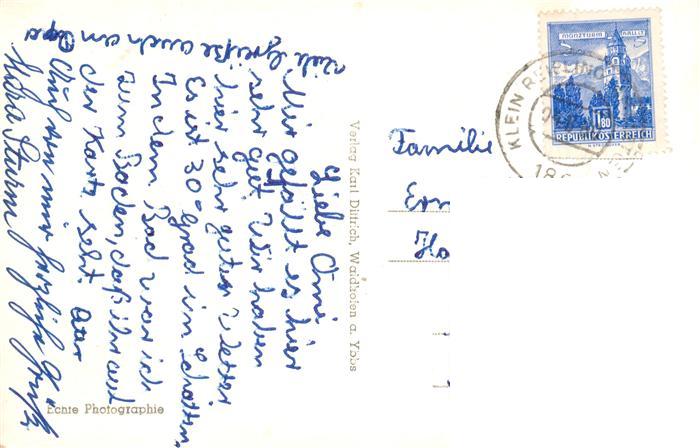 Liebe Omi
Mir gefällt es hier
sehr gut Wir haben
hier sehr gutes Wetter
Es ist 30-grad im Schatten,
In dem Bad war ich
zum Baden, daß ihr auf
der Karte seht. Aber
Und von mir herzliche Grüße
Viele Grüße auch an Opa
Echte Photographie
Verlag Karl Dittrich, Waidhofen a. Ybbs
MÜNZTURM HALL I. T.
S
1.80
REPUBLIK ÖSTERREICH
KLEIN REIFLING
Familie
Ern
Ho